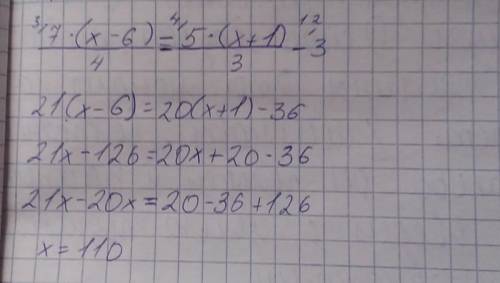 ³⁾7·(x-6)/4 = ⁴⁾5·(x+1)/3 - ¹²⁾3
21(x-6)=20(x+1)-36
21x-126=20x+20-36
21x-20x=20-36+126
x=110